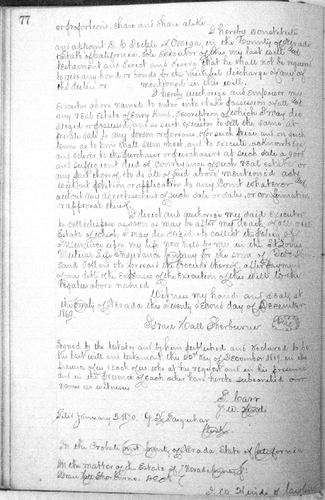 77
or proportions, share and share alike.
I hereby constitute
and appoint of Omega, in the County of Nevada
State of California, sole Executor of this my last will and
testament and direct and desire that he shall not be required
to give any bond or bonds for the faithful discharge of any of
the duties or mentioned in this will.
I hereby authorize and empower my
Executor above named to enter into & take possession of all
any real Estate of every kind & description of which I may die
seized or possessed and as such executor to sell the same at
public sale to any person or persons, for such price and on such
terms as to him shall seem meet, and to execute, acknowledge
and deliver to the purchaser or purchasers at such sale a good
and sufficient deed of conveyance of such real estate or
any part thereof, & to do all of said above mentioned acts
without petition or application to any Court whatever and
without any advertisement of such sale or sales, or confirmation
or approval thereof.
I direct and authorize my said Executor
to sell & dispose as soon as may be after my death of all
Estate of which I may die & to collect the policy of
Insurance upon my life now held by me in the St Louis
Mutual Life Insurance Company for the sum of
sand Dollars & to divide the proceeds thereof, after payment
of my debts & the expenses of the execution of this will to the
Legatees above named
Witness my hand and seal, at
the County of Nevada this twenty second day of December
1869
Isaac Hall Sherburne
Signed by the testator and by him published and declared to be
his last will and testament, this 22nd day of December 1869, in the
presence of us each of us who at his request and in his presence
and in the presence of each other have hereto subscribed our
names as witnesses
Carr
G. W.
Filed January 3 1870. Farquhar
Clerk
In the Probate Court County of Nevada State of California
In the matter of the Estate of
Isaac Hall Sherburne Dec'd